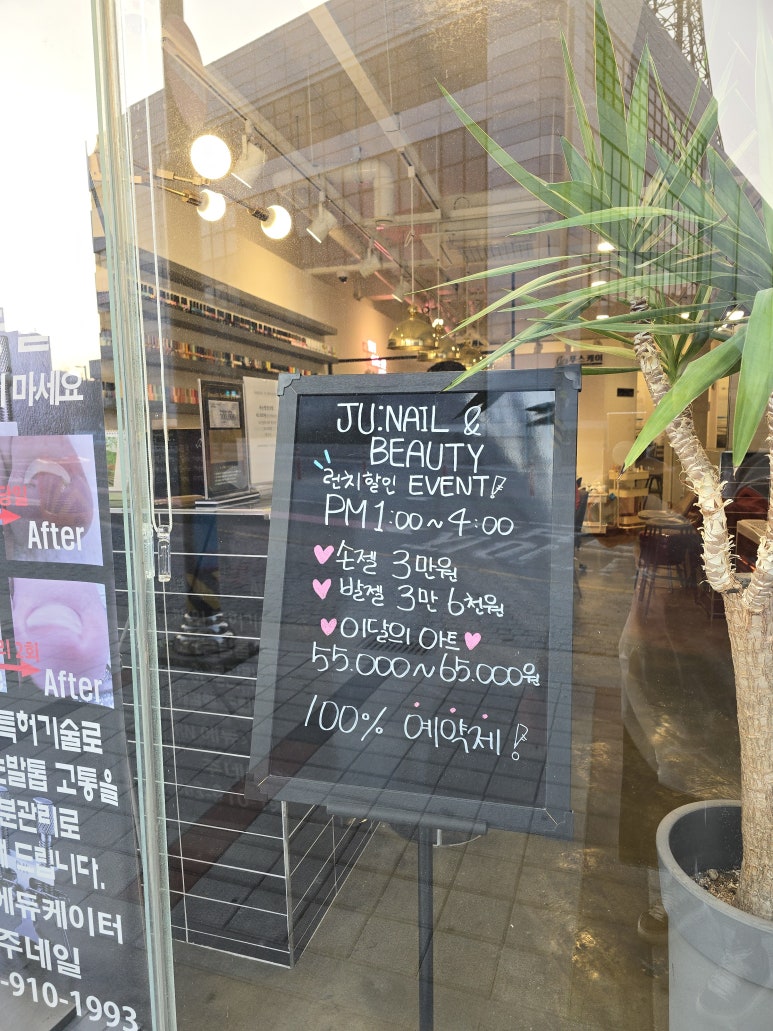 JU:NAIL &
BEAUTY
런치할인 EVENT!
PM 1:00~4:00
손젤 3만원
발젤 3만 6천원
이달의 아트
55.000~65.000원
100% 예약제!
마세요
After
2회
After
특허기술로
발톱 고통을
관리로
드립니다.
에듀케이터
주네일
-910-1993